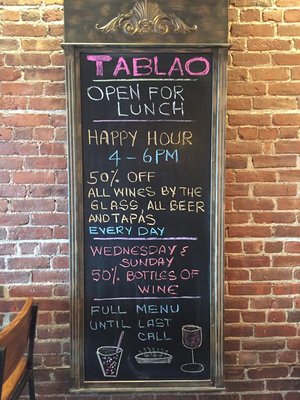 TABLAO
OPEN FOR
LUNCH
HAPPY HOUR
4-6PM
50% OFF
ALL WINES BY THE
GLASS, ALL BEER
AND TAPAS
EVERY DAY
WEDNESDAY &
SUNDAY
50% BOTTLES OF
WINE
FULL MENU
UNTIL LAST
CALL